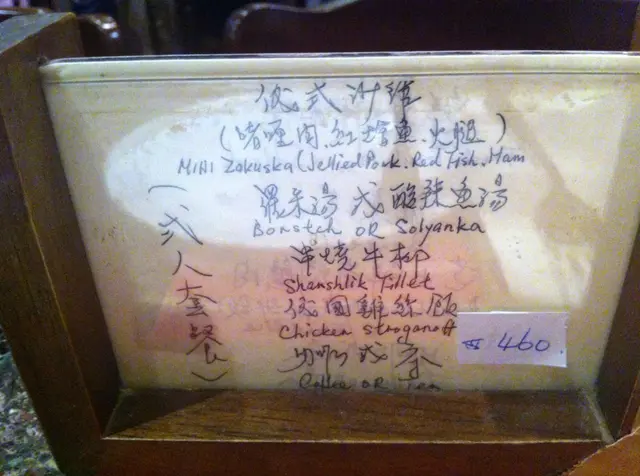 俄式沙律
(啫喱肉.紅鱒魚.火腿)
MINI Zokuska (Jellied Pork. Red Fish. Ham
羅宋湯 或 酸辣魚湯
Bonstch OR Solyanka
串燒牛柳
Shanshlik Fillet
俄國雞絲飯
Chicken stroganoff
咖啡或茶
Coffee OR Tea
(弍人套餐)
460